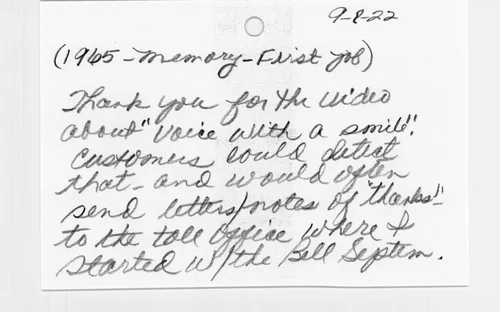 9-8-22
(1965-Memory-First job)
Thank you for the video
about "Voice with a smile".
Customers could detect
that - and would often
send letters/notes of "thanks"
to the toll office where I
started w/the Bell System.